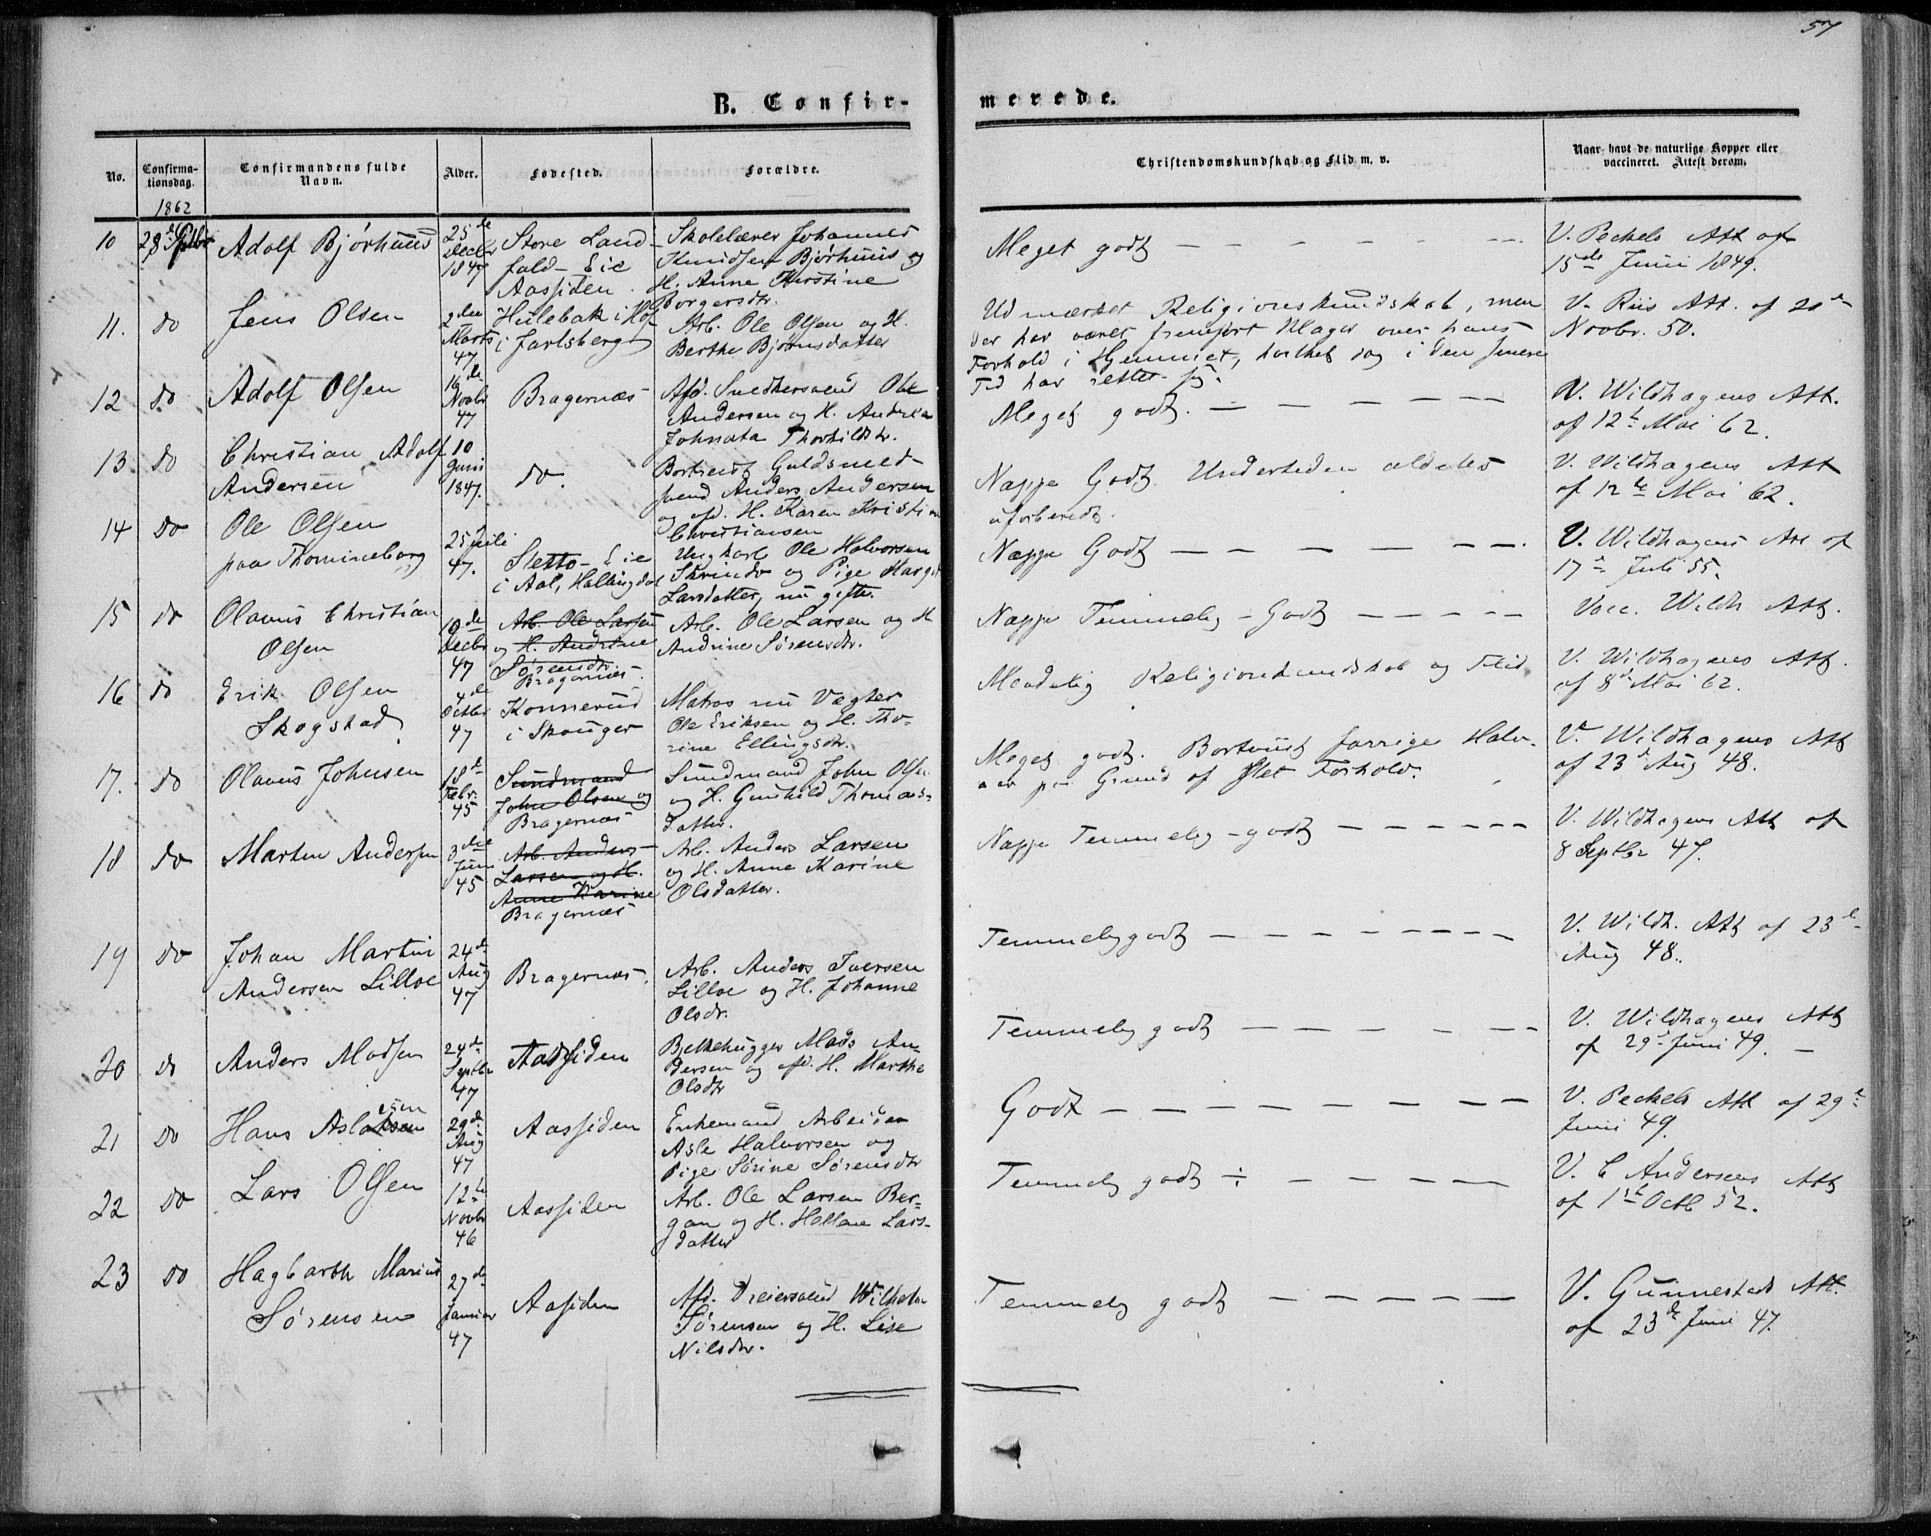 57
B. Confir-
merede.
No.
Confirma-
tionsdag.
Confirmandens fulde
Navn.
Alder.
Fødested.
Forældre.
Christendomskundskab og Flid m. v.
Naar havt de naturlige Kopper eller
vaccineret. Attest derom.
1862
10 28de Septbr Adolf Bjørhuus
25de
Decbr
1847
Store Land-
fald-Eie
Aassiden.
Skolelærer Johannes
Knudsen Bjørhuus og
H. Anne Kirstine
Borgersdtr.
Meget godt
V. Peckels Att af
15de Juni 1849.
11. do Jens Olsen
2den
Marts
47
Hulebak i Hof
i Jarlsberg
Arb. Ole Olsen og H.
Berthe Bjørnsdatter
Udmærket Religionskundskab, men
der har været fremført Klager over hans
Forhold i Hjemmet, hvilket dog i den senere
Tid har rettet sig.
V. Riis Att. af 20de
Novbr. 50.
12 do Adolf Olsen
16de
Novbr
47
Bragernæs
Afd. Snedkersvend Ole
Andersen og H. Andrea
Johnata Thorkildsdtr.
Meget godt.
V. Wildhagens Att.
af 12te Mai 62.
13. do Christian Adolf
Andersen
10
Juni
1847.
do.
Bortreist Guldsmed-
svend Anders Andersen
og afd. H. Karen Kristine
Christiansen
Neppe Godt. Undertiden aldeles
uforberedt.
V. Wildhagens Att
af 12te Mai 62.
14 do Ole Olsen
paa Thomineborg
25 Juli
47.
Sletto-Eie
i Aal, Hallingdal
Ungkarl Ole Halvorsen
Skrindo og Pige Margit
Larsdatter, nu gifte.
Neppe Godt
V. Wildhagens Att af
17de Juli 55.
15 do Olaves Christian
Olsen
10de
Decbr
47
Arb. Ole Larsen
og H. Andrine
Sørensdtr.
Bragernæs.
Arb. Ole Larsen og H.
Andrine Sørensdtr.
Neppe Temmelig-Godt
Vacc. Wildh Att.
16 do Erik Olsen
Skogstad
4de
Octbr
47
Konnerud
i Skouger
Matros nu Vægter
Ole Eriksen og H. Tho-
rine Ellingsdtr.
Maadelig Religionskundskab og Flid
V. Wildhagens Att.
af 8de Mai 62.
17. do Olaves Johnsen
18de
Febr.
45
Sundmand
John Olsen og
Bragernæs
Sundmand John Olsen
og H. Gunhild Thomas-
datter.
Meget godt. Bortviist forrige Halv-
aar paa Grund af slet Forhold.
V. Wildhagens Att
af 23de Aug 48.
18 do Marten Andersen
3die
Juni
45
Arb. Anders
Larsen og H.
Anne Karine
Bragernæs
Arb. Anders Larsen
og H. Anne Karine
Olsdatter.
Neppe Temmelig-godt
V. Wildhagens Att af
8 Septbr 47.
19 do Johan Martin
Andersen Lilloe
24de
Aug
47
Bragernæs.
Arb. Anders Iversen
Lilloe og H. Johanne
Olsdr.
Temmelig godt
V. Wildh. Att af 23de
Aug 48.
20 do Anders Madsen
24de
Septbr
47
Aassiden
Bjelkehugger Mads An-
dersen og afd. H. Marthe
Olsdtr
Temmelig godt
V. Wildhagens Att
af 29de Juni 49.
21 do Hans Aslesen
29de
Aug
47
Aassiden
Enkemand Arbeider
Asle Halvorsen og
Pige Sørine Sørensdtr
Godt
V. Peckels Att af 29de
Juni 49.
22 do Lars Olsen
12te
Novbr
46
Aassiden
Arb. Ole Larsen Ber-
gan og H. Hellene Lars-
datter
Temmelig godt
V. C Andersens Att
af 1ste Octb 52.
23 do Hagbarth Marius
Sørensen
27de
Januar
47
Aasiden
Afd. Dreiersvend Wilhelm
Sørensen og H. Lise
Nilsdtr.
Temmelig godt
V. Gunnestads Att.
af 23de Juni 47.